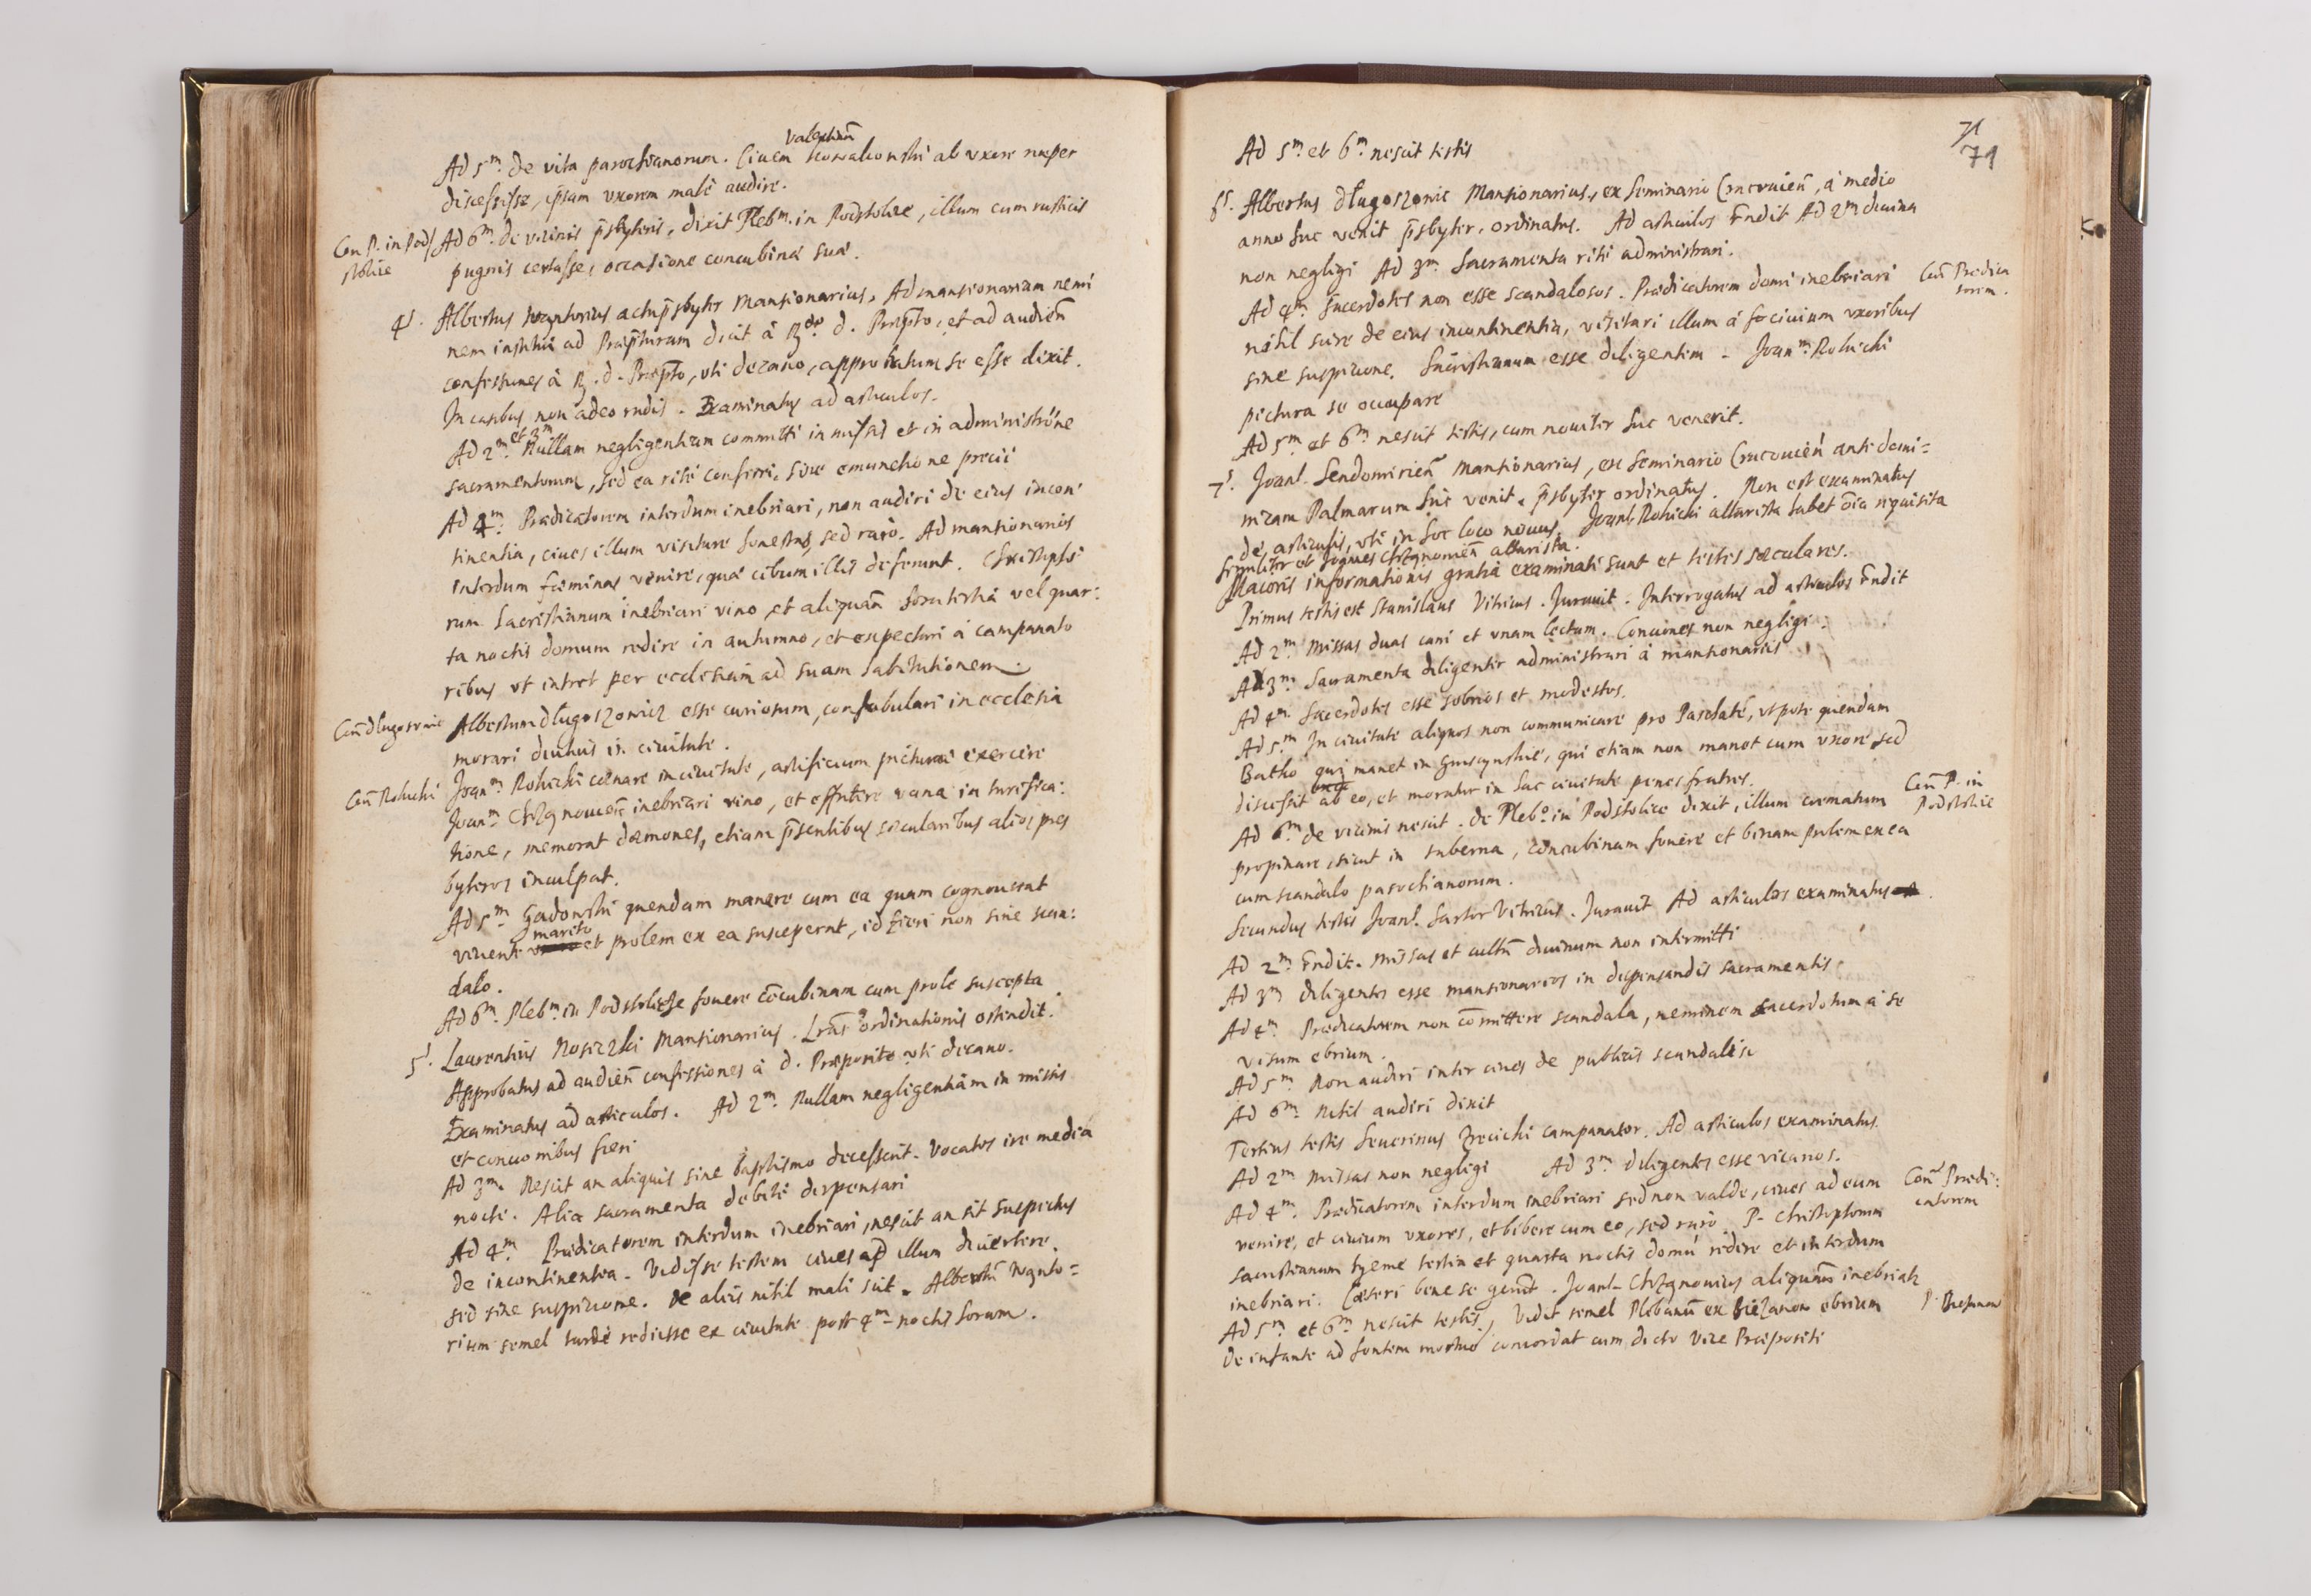 Valentinū
Ad 5m. de vita parochianorum. Ciuem Kowalkowski ab vxore nuper
discessisse, ipsam vxorem malè audire.
Con P. in Pod
stolice
Ad 6m. de vicinis p̄sbyteris, dixit Plebm. in Podstolice, illum cum rusticis
pugnis certasse, occasione concubinæ suæ.
4s. Albertus actup̄sbyter Mansionarius. Ad mansionariam nemi
nem institui ad Præp̄turam dicit à Rdo d. Præp̄to, et ad audien̄
confessiones à R. d. Præp̄to, vti decano, approbatum se esse dixit.
In casibus non adeo rudis. Examinatus ad articulos.
et 3m
Ad 2m. Nullam negligentiam committi in missis et in administrōne
sacramentorum, sed ea ritè conferri, sine emunctione precii
Ad 4m. Prædicatorem interdum inebriari, non audiri de eius incon
tinentia, ciues illum visitare honestos, sed raro. Ad mansionarios
interdum fæminas venire, quæ cibum illis deferunt. Christopho
rum Sacristianum inebriari vino, et aliquan̄ hora tertia vel quar:
ta noctis domum redire in autumno, et expectari à campanato
ribus vt intret per ecclesiam ad suam habitationem.
Con̄ Długosowic
Albertum Długoszowicz esse curiosum, confabulari in ecclesia
morari diutius in ciuitate.
Con̄ Rohicki
Joanm Rohicki cœnare in ciuitate, artificium picturæ exercere
Joanm inebriari vino, et effutire vana in turifica:
tione, memorat dæmones, etiam p̄sentibus sæcularibus alios pres
byteros inculpat.
Ad 5m Gadowski quendam manere cum ea quam cognouerat
marito
viuente et prolem ex ea susceperat, id fieri non sine scan:
dalo.
Ad 6m. Plebm. in Podstolicze fouere cōcubinam cum prole suscepta
5s. Laurentius Nosiczki Mansionarius. Lrās ordinationis ostendit.
Approbatus ad audien̄ confessiones à d. Præposito vti decano.
Examinatus ad articulos. Ad 2m. Nullam negligentiam in missis
et concionibus fieri
Ad 3m. Nescit an aliquis sine baptismo decesserit. Vocatos ire media
nocte. Alia sacramenta debitè dispensari
Ad 4m. Prædicatorem interdum inebriari, nescit an sit suspectus
de incontinentia. Vidisse testem ciues ad illum diuertere,
sed sine suspicione. De aliis nihil mali scit. Albertū
rium semel tardè rediisse ex ciuitate post 4m noctis horam.
71
71
Ad 5m. et 6m. nescit testis
6s. Albertus Długoszowic Mansionarius, ex Seminario Cracouien̄, à medio
anno huc venit p̄sbyter, ordinatus. Ad articulos r̄ndit Ad 2m diuina
non negligi Ad 3m. Sacramenta ritè administrari.
Ad 4m. Sacerdotes non esse scandalosos. Prædicatorem domi inebriari
Con̄ Prædica
torem.
nihil scire de eius incontinentia, visitari illum à fo ciuium vxoribus
sine suspicione. Sacristianum esse diligentem. Joanm. Rohicki
pictura se occupare
Ad 5m et 6m nescit testis, cum nouiter huc venerit.
7s. Joanes Sendomirien̄ Mansionarius, ex Seminario Cracouien̄ ante domi=
nicam Palmarum huc venit, p̄sbyter ordinatus. Non est examinatus
de articulis, vti in hoc loco nouus. Joanes Rohicki altarista habet ōia requisita
similiter et Joannes altarista.
Maioris informationis gratiâ examinati sunt et testes sæculares.
Primus testis est Stanislaus Vitricus. Jurauit. Interrogatus ad articulos r̄ndit
Ad 2m. Missas duas cani et vnam lectam. Conciones non negligi.
Ad 3m. Sacramenta diligenter administrari à mansionariis
Ad 4m. Sacerdotes esse sobrios et modestos.
Ad 5m. In ciuitate aliquos non communicare pro Paschate, vtpote quendam
Batko qui manet in, qui etiam non manet cum vxore sed
vxor
discessit ab eo, et moratur in hac ciuitate penes fratres.
Con̄ P. in
Podstolice
Ad 6m de vicinis nescit. de Plebo in Podstolice dixit, illum crematum
propinare, sicut in taberna, concubinam fouere et binam prolem ex ea
cum scandalo parochianorum.
Secundus testis Joanes Sartor Vitricus. Jurauit Ad articulos examinatus.
Ad 2m r̄ndit. Missas et cultū diuinum non intermitti
Ad 3m diligentes esse mansionarios in dispensandis sacramentis
Ad 4m. Prædicatorem non cōmittere scandala, neminem sacerdotum à se
visum ebrium.
Ad 5m. Non audiri inter ciues de publicis scandalis
Ad 6m. Nihil audiri dixit
Tertius testis Seuerinus Zrecicki campanator. Ad articulos examinatus.
Ad 2m Missas non negligi Ad 3m. diligentes esse vicarios.
Ad 4m. Prædicatorem interdum inebriari sed non valde, ciues ad eum
Con̄ Prædi:
catorem
venire, et ciuium vxores, et bibere cum eo, sed raro. P. Christophorum
sacristianum hyeme tertia et quarta noctis domū redire et interdum
inebriari. Cæteri bene se gerūt. Joanes aliquan̄ inebriatr
Ad 5m et 6m nescit testis, Vidit semel Plebanū ex Biezanow ebrium
P. Biezanow
De infante ad fontem mortuo concordat cum dicto Vice Præpositi